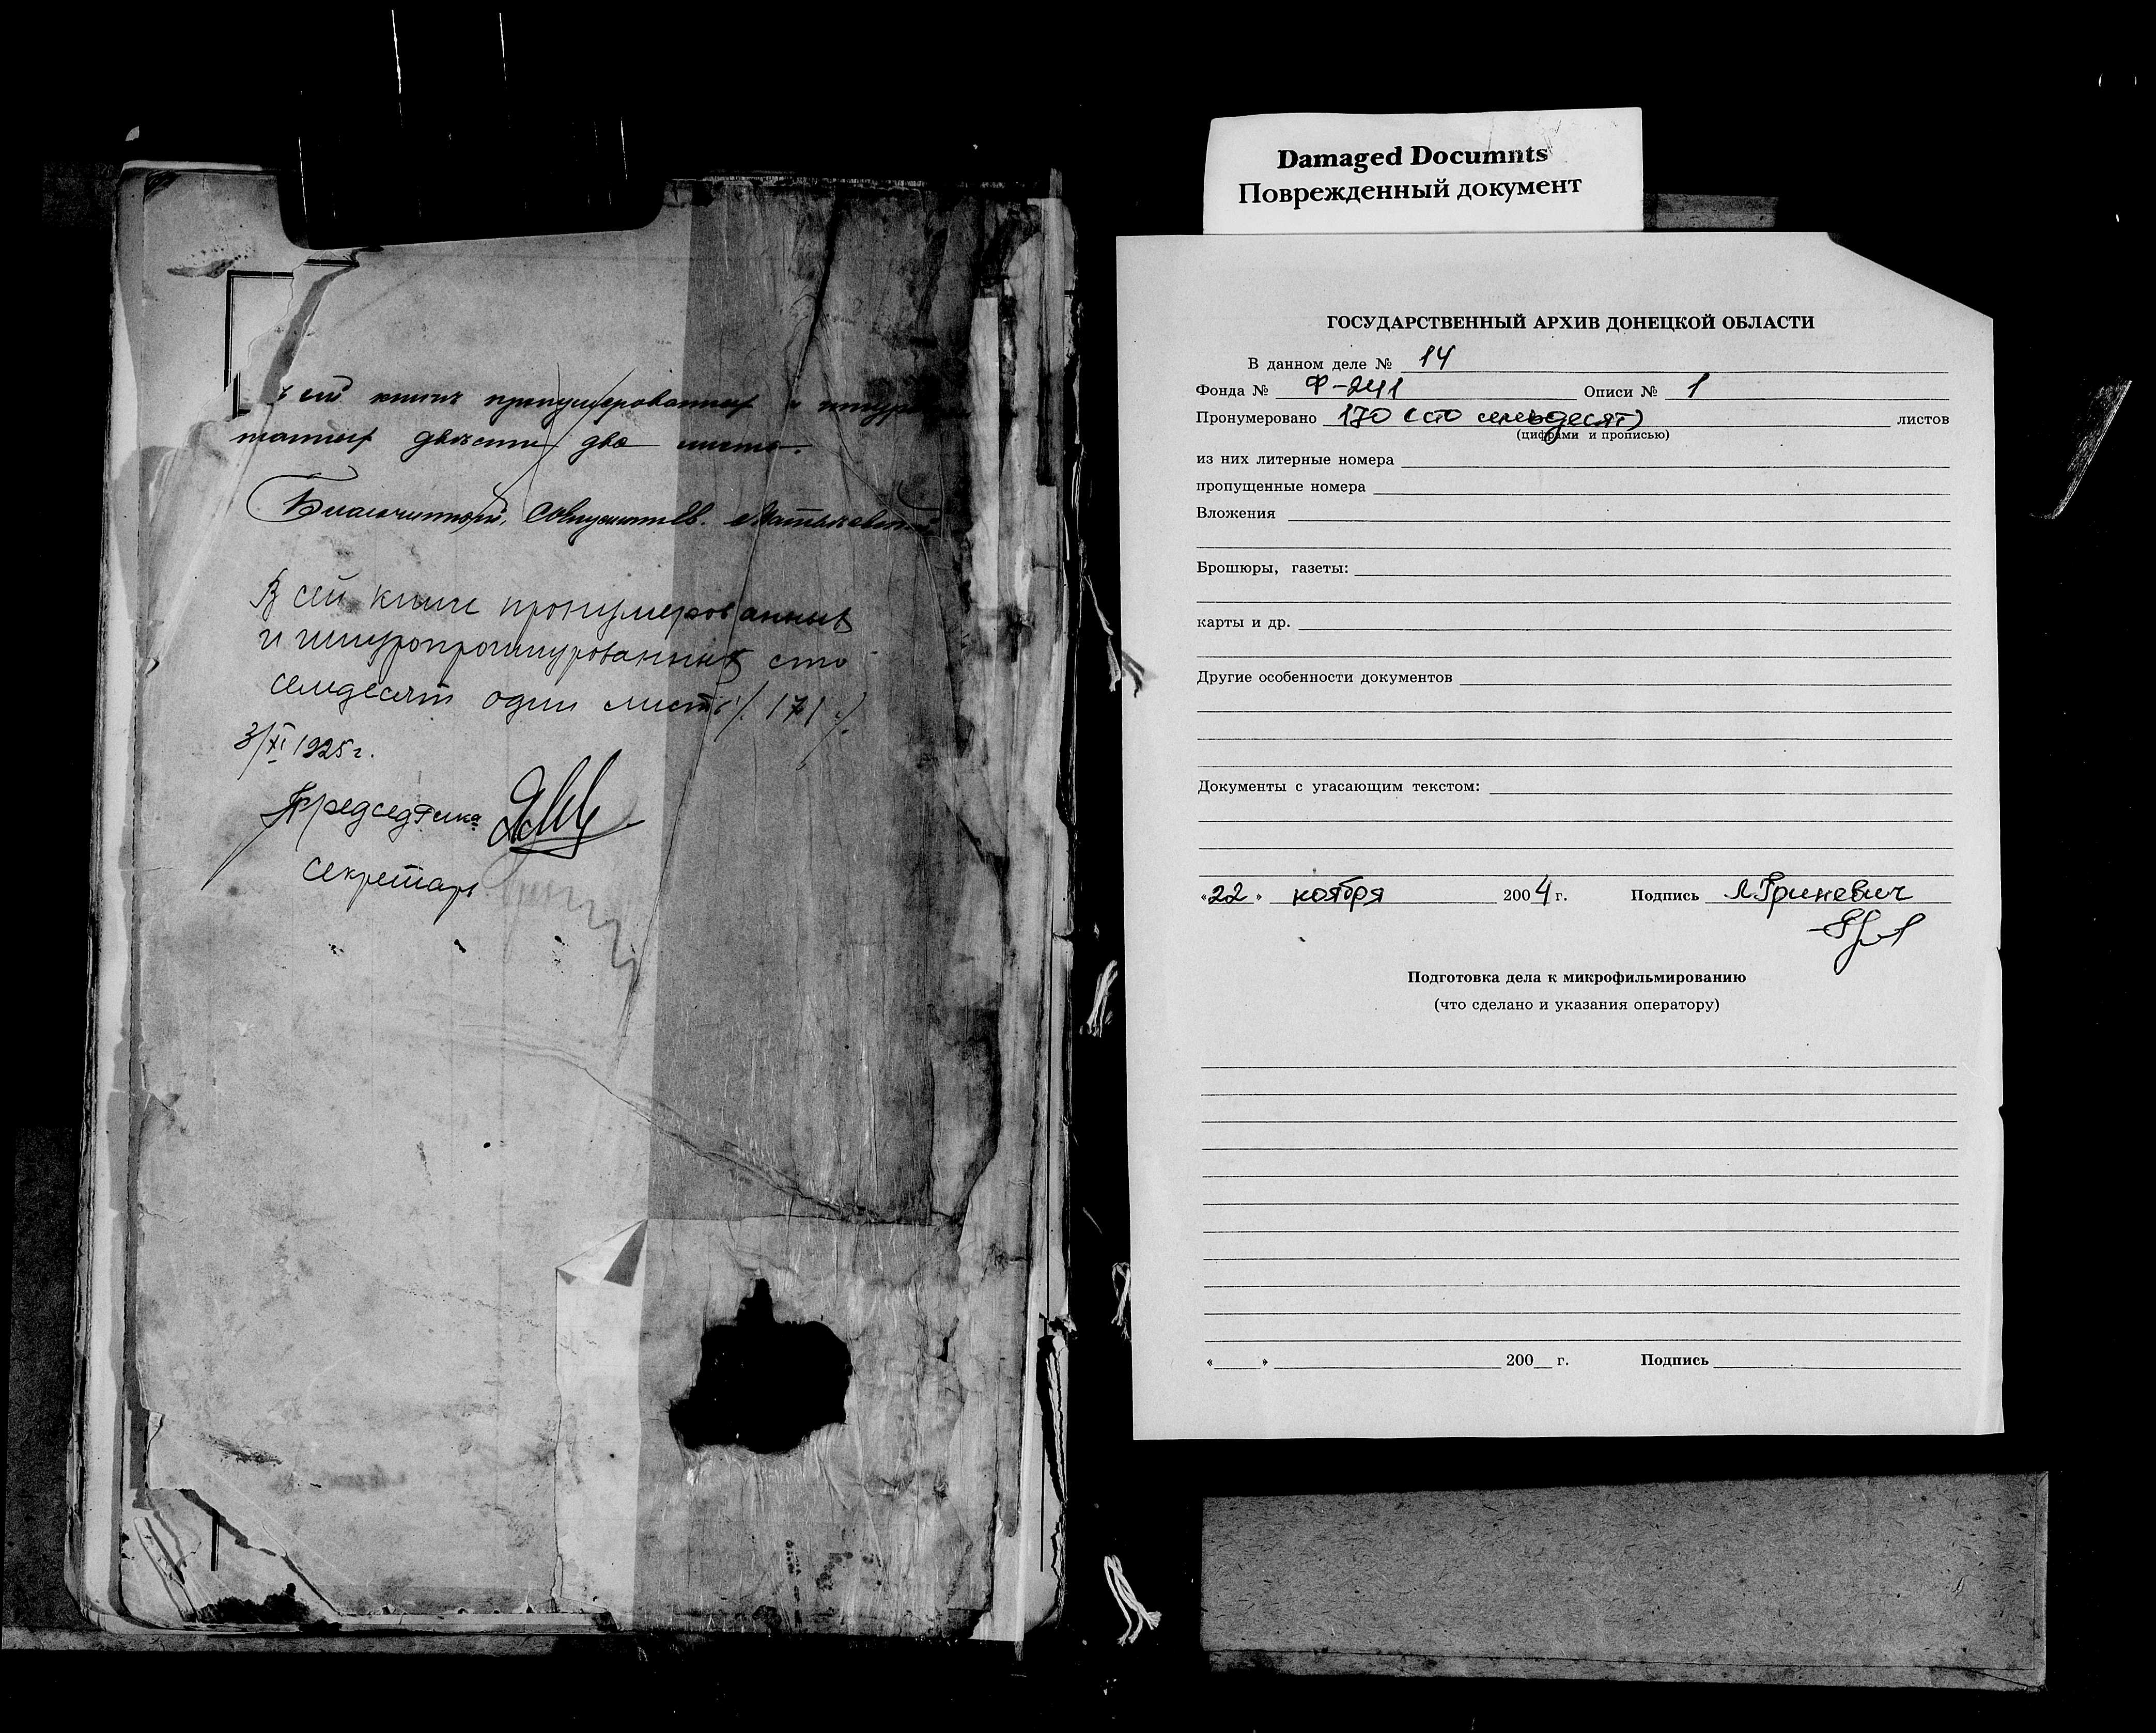 сей книги пронумерованных и шнуро
ванных двѣсти два листа.
Благочинный, Священникъ
В сей книге пронумерованных
и шнуропрошнурованных сто
семдесят один листъ /. 171 ./
3/XI 1925 г.
Председ
Секретарь
Damaged Documnts
Поврежденный документ
ГОСУДАРСТВЕННЫЙ АРХИВ ДОНЕЦКОЙ ОБЛАСТИ
В данном деле № 14
Фонда № Ф-241 Описи № 1
Пронумеровано 170 (сто семьдесят) листов
(цифрами и прописью)
из них литерные номера
пропущенные номера
Вложения
Брошюры, газеты:
карты и др.
Другие особенности документов
Документы с угасающим текстом:
«22» ноября 2004 г. Подпись Л Гриневич
Подготовка дела к микрофильмированию
(что сделано и указания оператору)
«___» 200__ г. Подпись